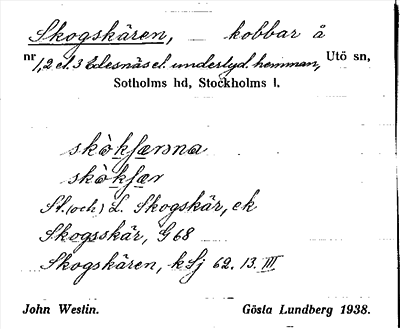 Skogskären, kobbar å
nr 1, 2 el. 3 Edesnäs el. underlyd. hemman, Utö sn,
Sotholms hd, Stockholms l.
skò̀kʃæṇṇa
skò̀kʃær
St. (och) L. Skogskär, ek
Skogsskär, G 68
Skogskären, kSj 62. 13. III
John Westin. Gösta Lundberg 1938.